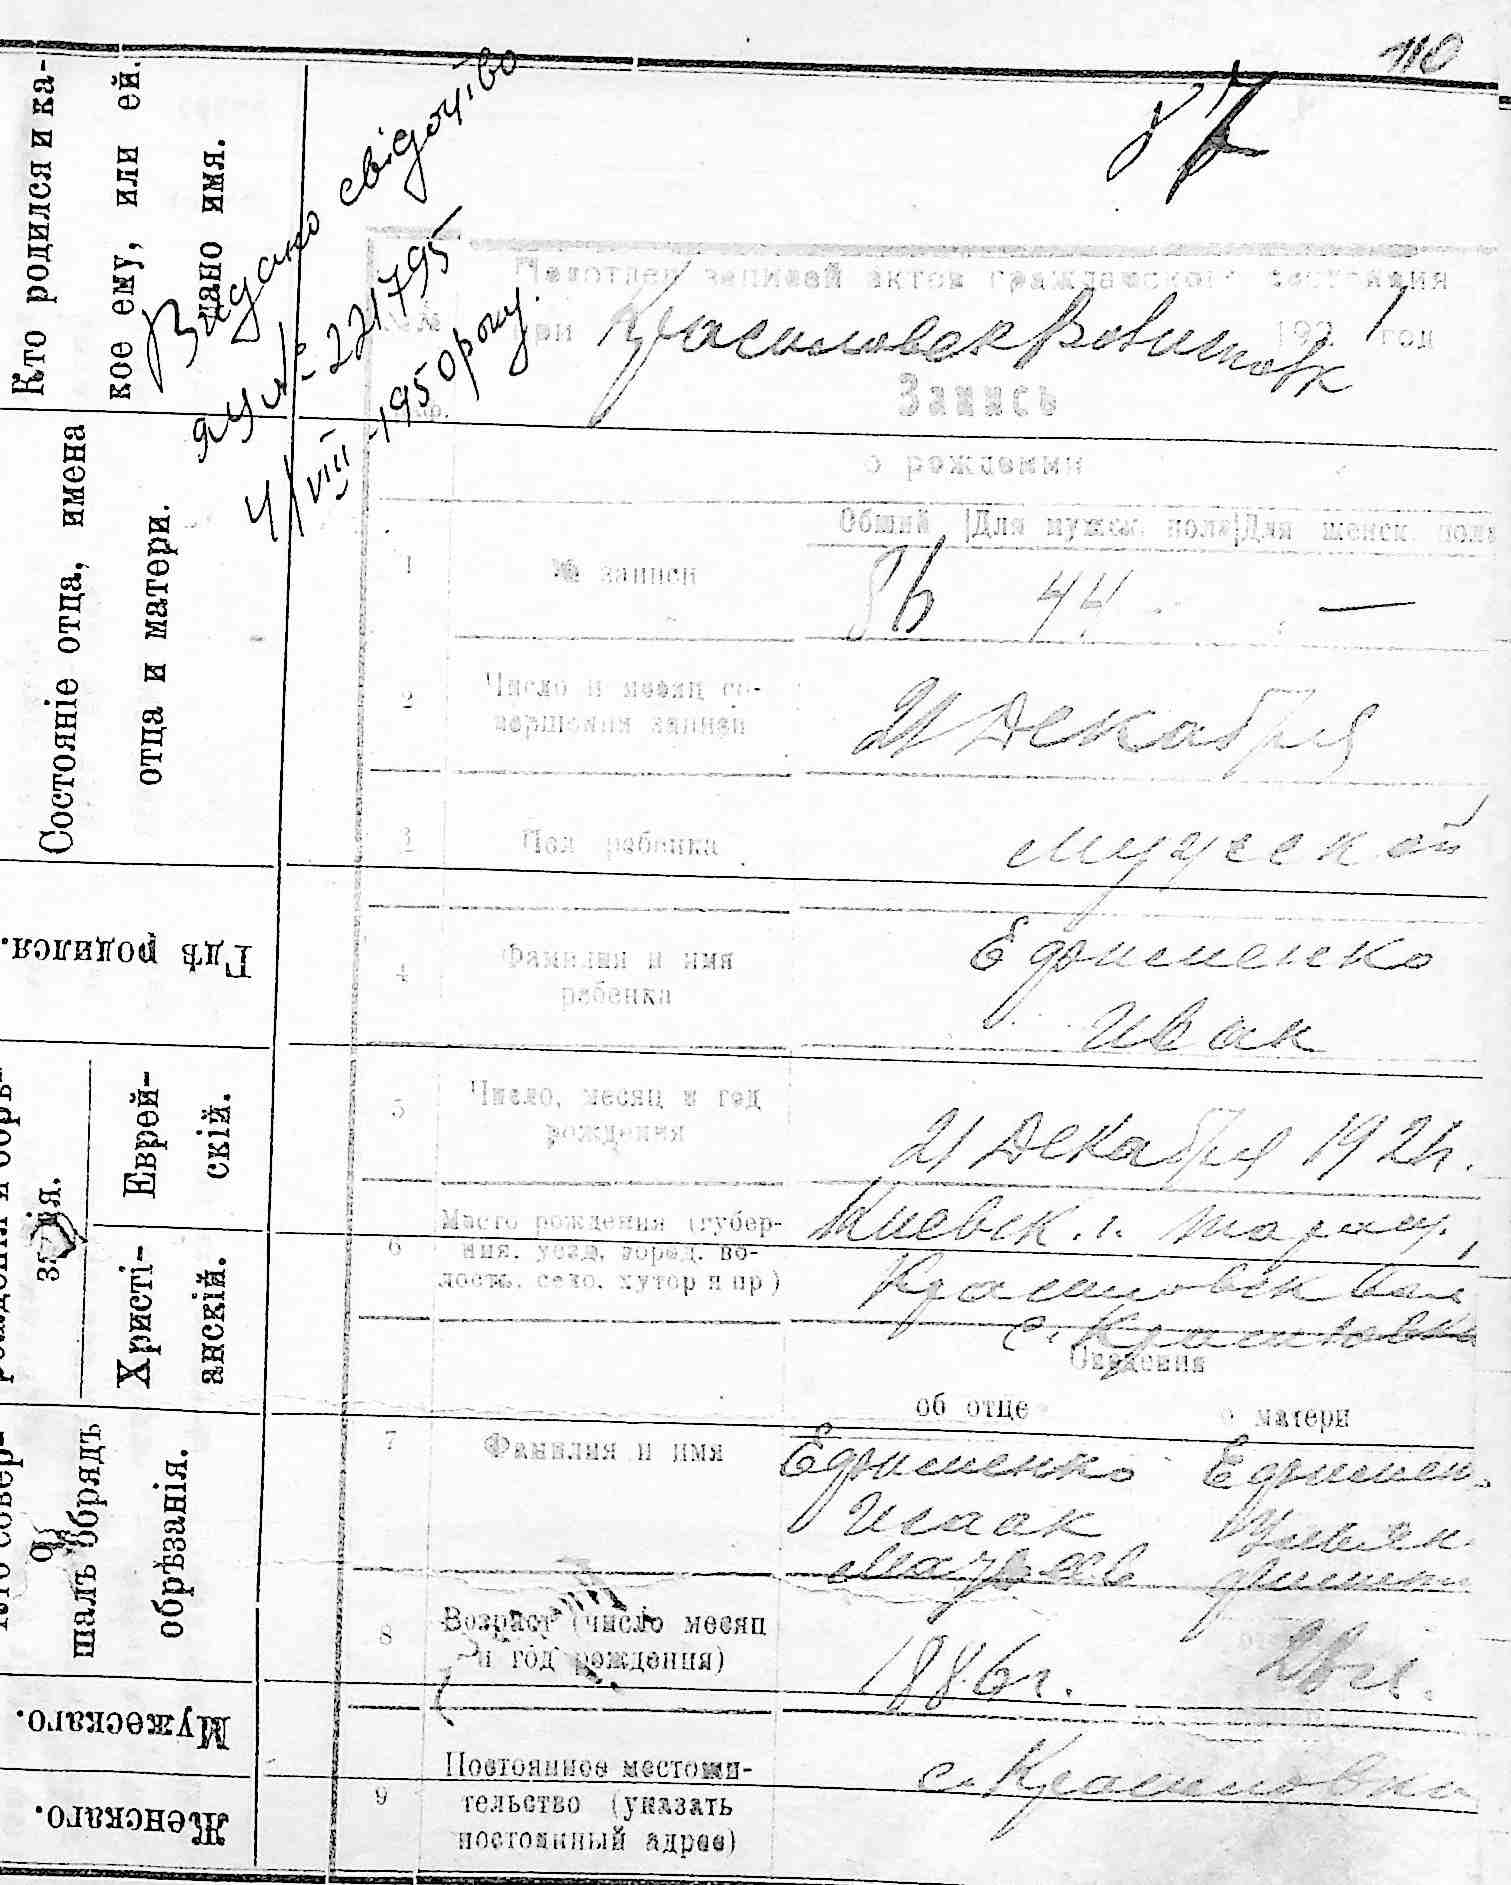 110
87
Кто родился и ка-
кое ему, или ей.
дано имя.
Видано свідоцтво
ЯЦ № 221795
4/VIII 1950 року.
Подотдел записей актов гражданского состояния
при Красиловск Волисполк 1921 год
Запись
о рождении
Общий Для мужск. пола Для женск. пола
1 № записи 86 44 —
Состояніе отца, имена
отца и матери.
2 Число и месяц со-
вершения записи
21 Декабря
3 Пол ребенка Мужской
Гдѣ родился.
4 Фамилия и имя
ребенка
Ефименко
Иван
5 Число, месяц и год
рождения
21 Декабря 1921г.
Еврей-
скій.
Христі-
анскій.
занія.
6 Место рождения (губер-
ния, уезд, город, во-
лость, село, хутор и пр)
Киевск. г. Таращ.,
Красиловск Вол
с. Красиловка
Сведения
об отце о матери
7 Фамилия и имя
Ефименко Ефимен.
Исаак Ульян.
шалъ обрядъ
обрѣзанія.
8 Возраст (число месяц
и год рождения)
1886г.
Мужескаго.
Женскаго.
9 Постоянное местожи-
тельство (указать
постоянный адрес)
с. Красиловка